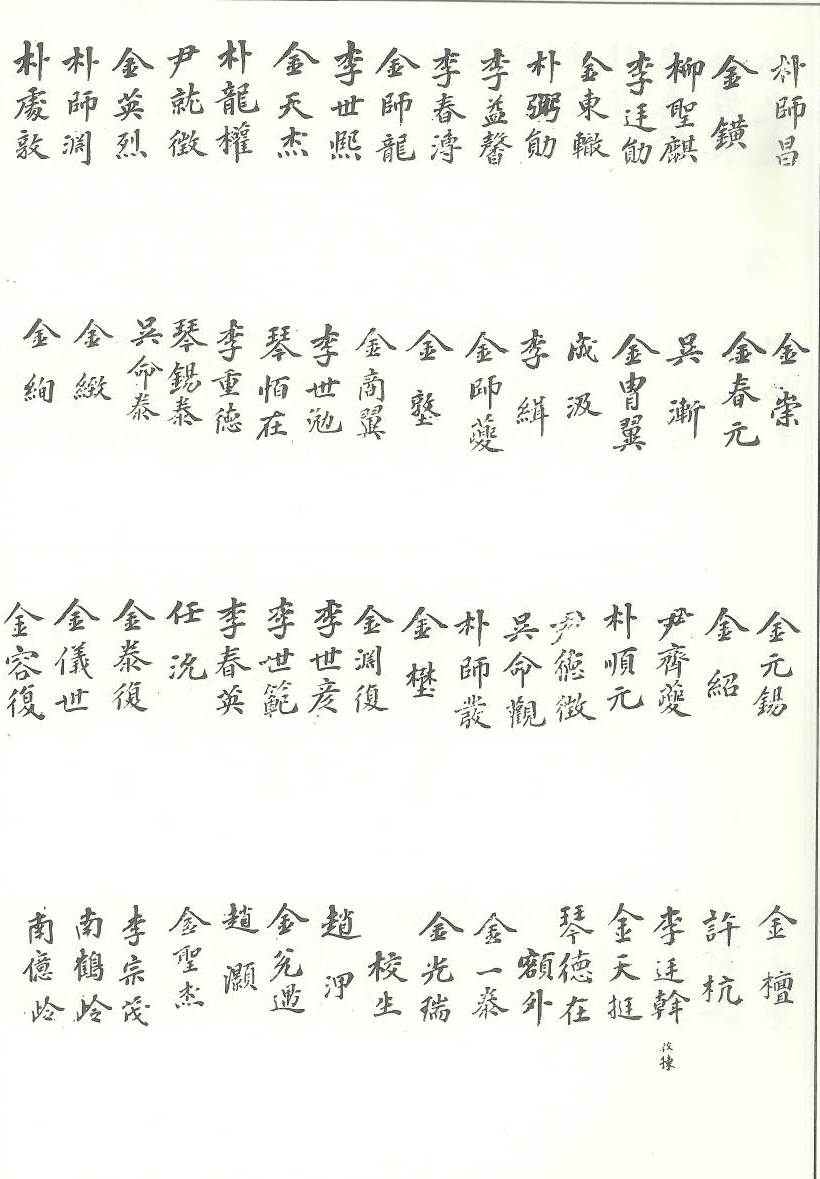 朴師昌
金鐄
柳聖麒
李廷勛
金東轍
朴弼勛
李益馨
李春溥
金師龍
李世熙
金天杰
朴龍權
尹就徵
金英烈
朴師淵
朴處敦
金崇
金春元
吳漸
金胄翼
成汲
李緝
金師夔
金
金商翼
李世勉
琴怕在
李重德
琴錫泰
吳命泰
金緻
金絢
金元錫
金紹
尹齊夔
朴順元
尹德徵
吳命觀
朴師叢
金
金淵復
李世彦
李世範
李春英
任沇
金泰復
金儀世
金容復
金檀
許杭
李廷幹 改
金天挺
琴德在
額外
金一泰
金光瑞
校生
趙
金兌遇
趙灝
金聖杰
李宗茂
南鶴岭
南億岭